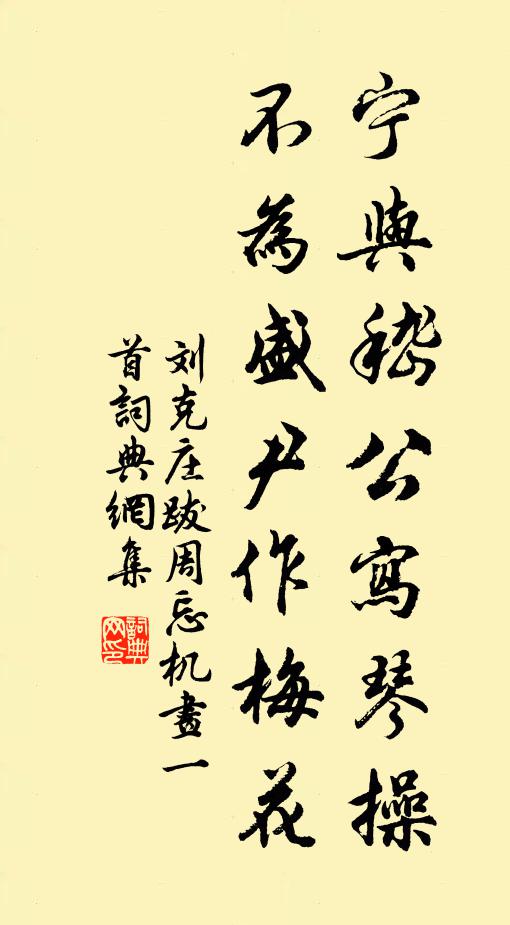 宁與嵇公寫琴操
不為盛尹作梅花
刘克庄跋周忘机畫一
首詞典網集
詞典
网印